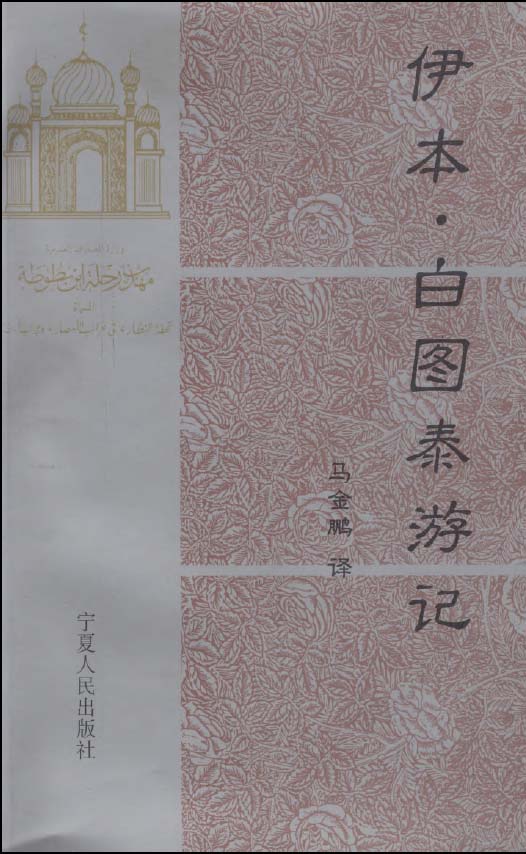 伊本·白图泰游记
马金鹏 译
وزارة المعارف العمومية
مهذب رحلة ابن بطوطة
المسماة
تحفة النظار في غرائب الأمصار وعجائب
宁夏人民出版社